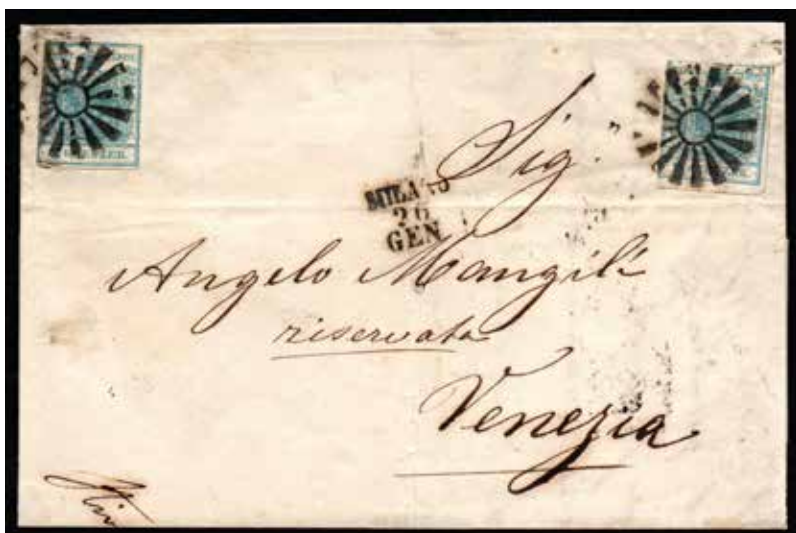 Sig.
MILANO
20
GEN.
Angelo Mangili
riservata
Venezia